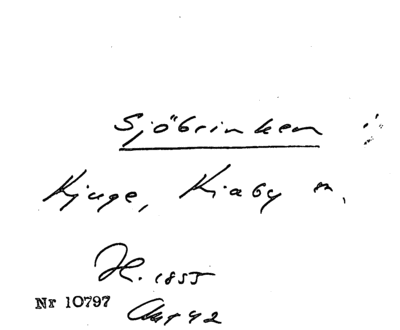 Sjöbrinken
Kjuge, Kiaby sn.
H. 1855
Nr 10797
Aug 42